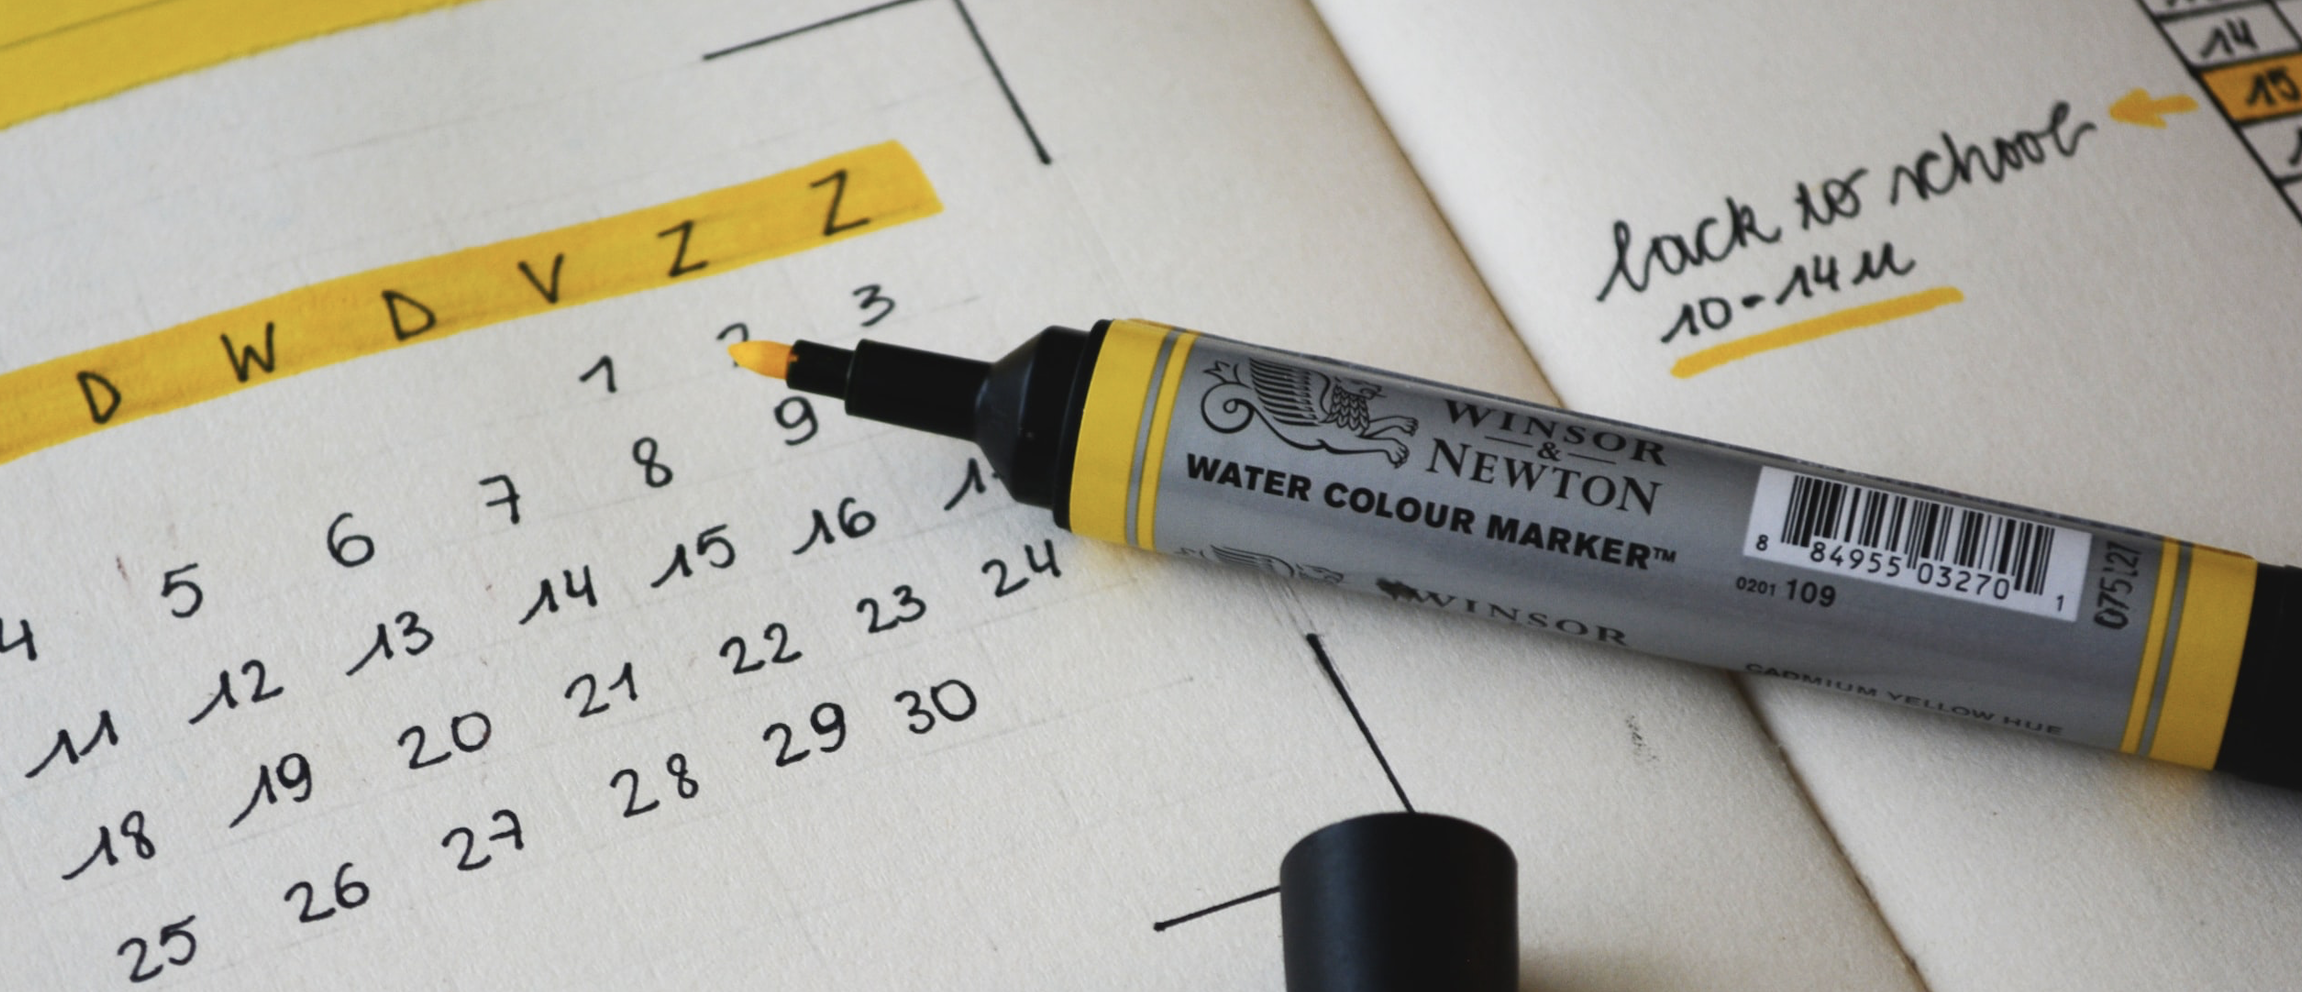 D W D V Z Z
1 2 3
4 5 6 7 8 9
11 12 13 14 15 16
18 19 20 21 22 23 24
25 26 27 28 29 30
14
15
back to school
10-14u
WINSOR
&
NEWTON
WATER COLOUR MARKER™
8 84955 03270 1
0201 109
075127
WINSOR
CADMIUM YELLOW HUE